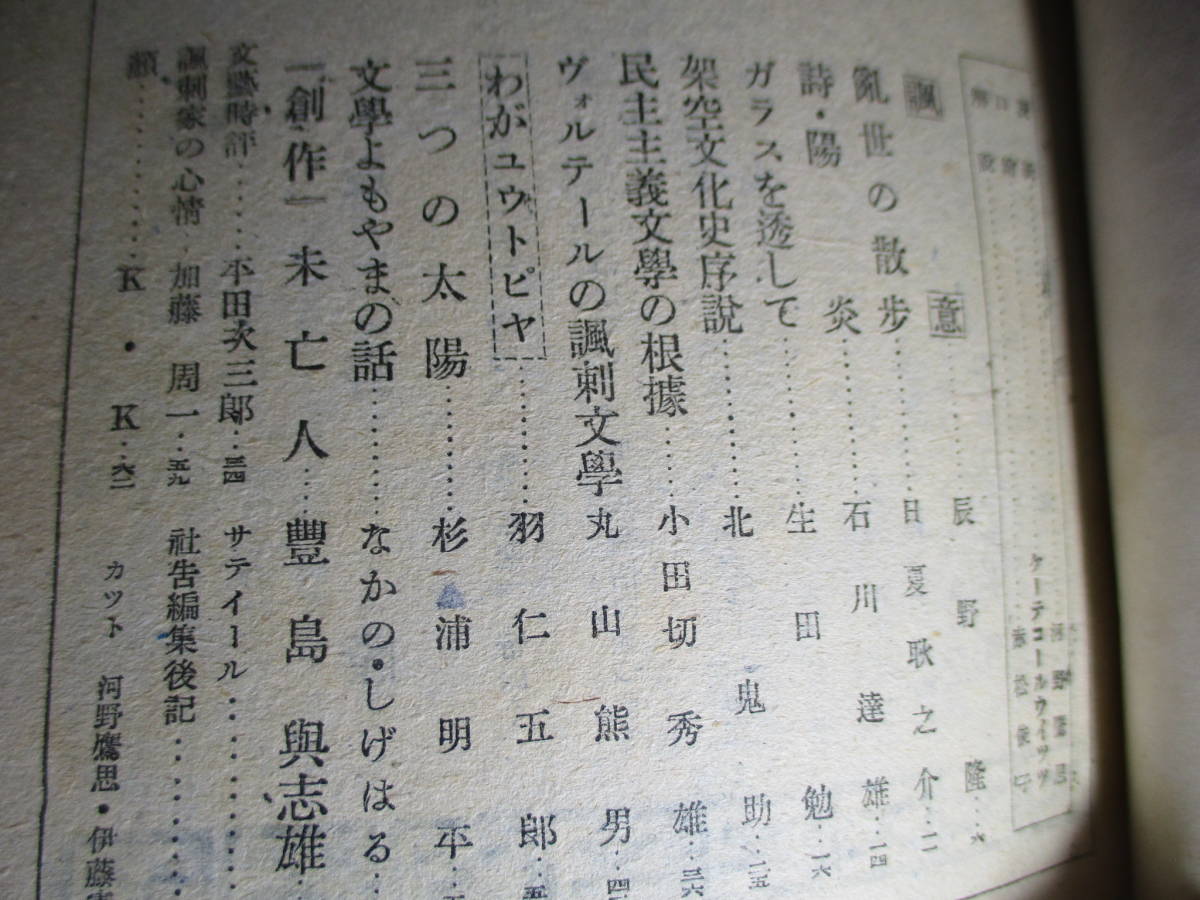 ケーテコールウイッツ
諷意……辰野隆…六
亂世の散步……日夏耿之介…一一
詩・陽炎……石川達雄…一四
ガラスを透して……生田勉…一六
架空文化史序說……北鬼助…二五
民主主義文學の根據……小田切秀雄…三六
ヴォルテールの諷刺文學 丸山熊男…四
わがユウトピヤ……羽仁五郎…五
三つの太陽……杉浦明平…
文學よもやまの話……なかの・しげはる…
『創作』未亡人……豐島與志雄
文藝時評……平田次三郎…三四 サテイール……
諷刺家の心情…加藤周一…五九 社告編集後記……
顏……K・K…六二 カット 河野鷹思・伊藤